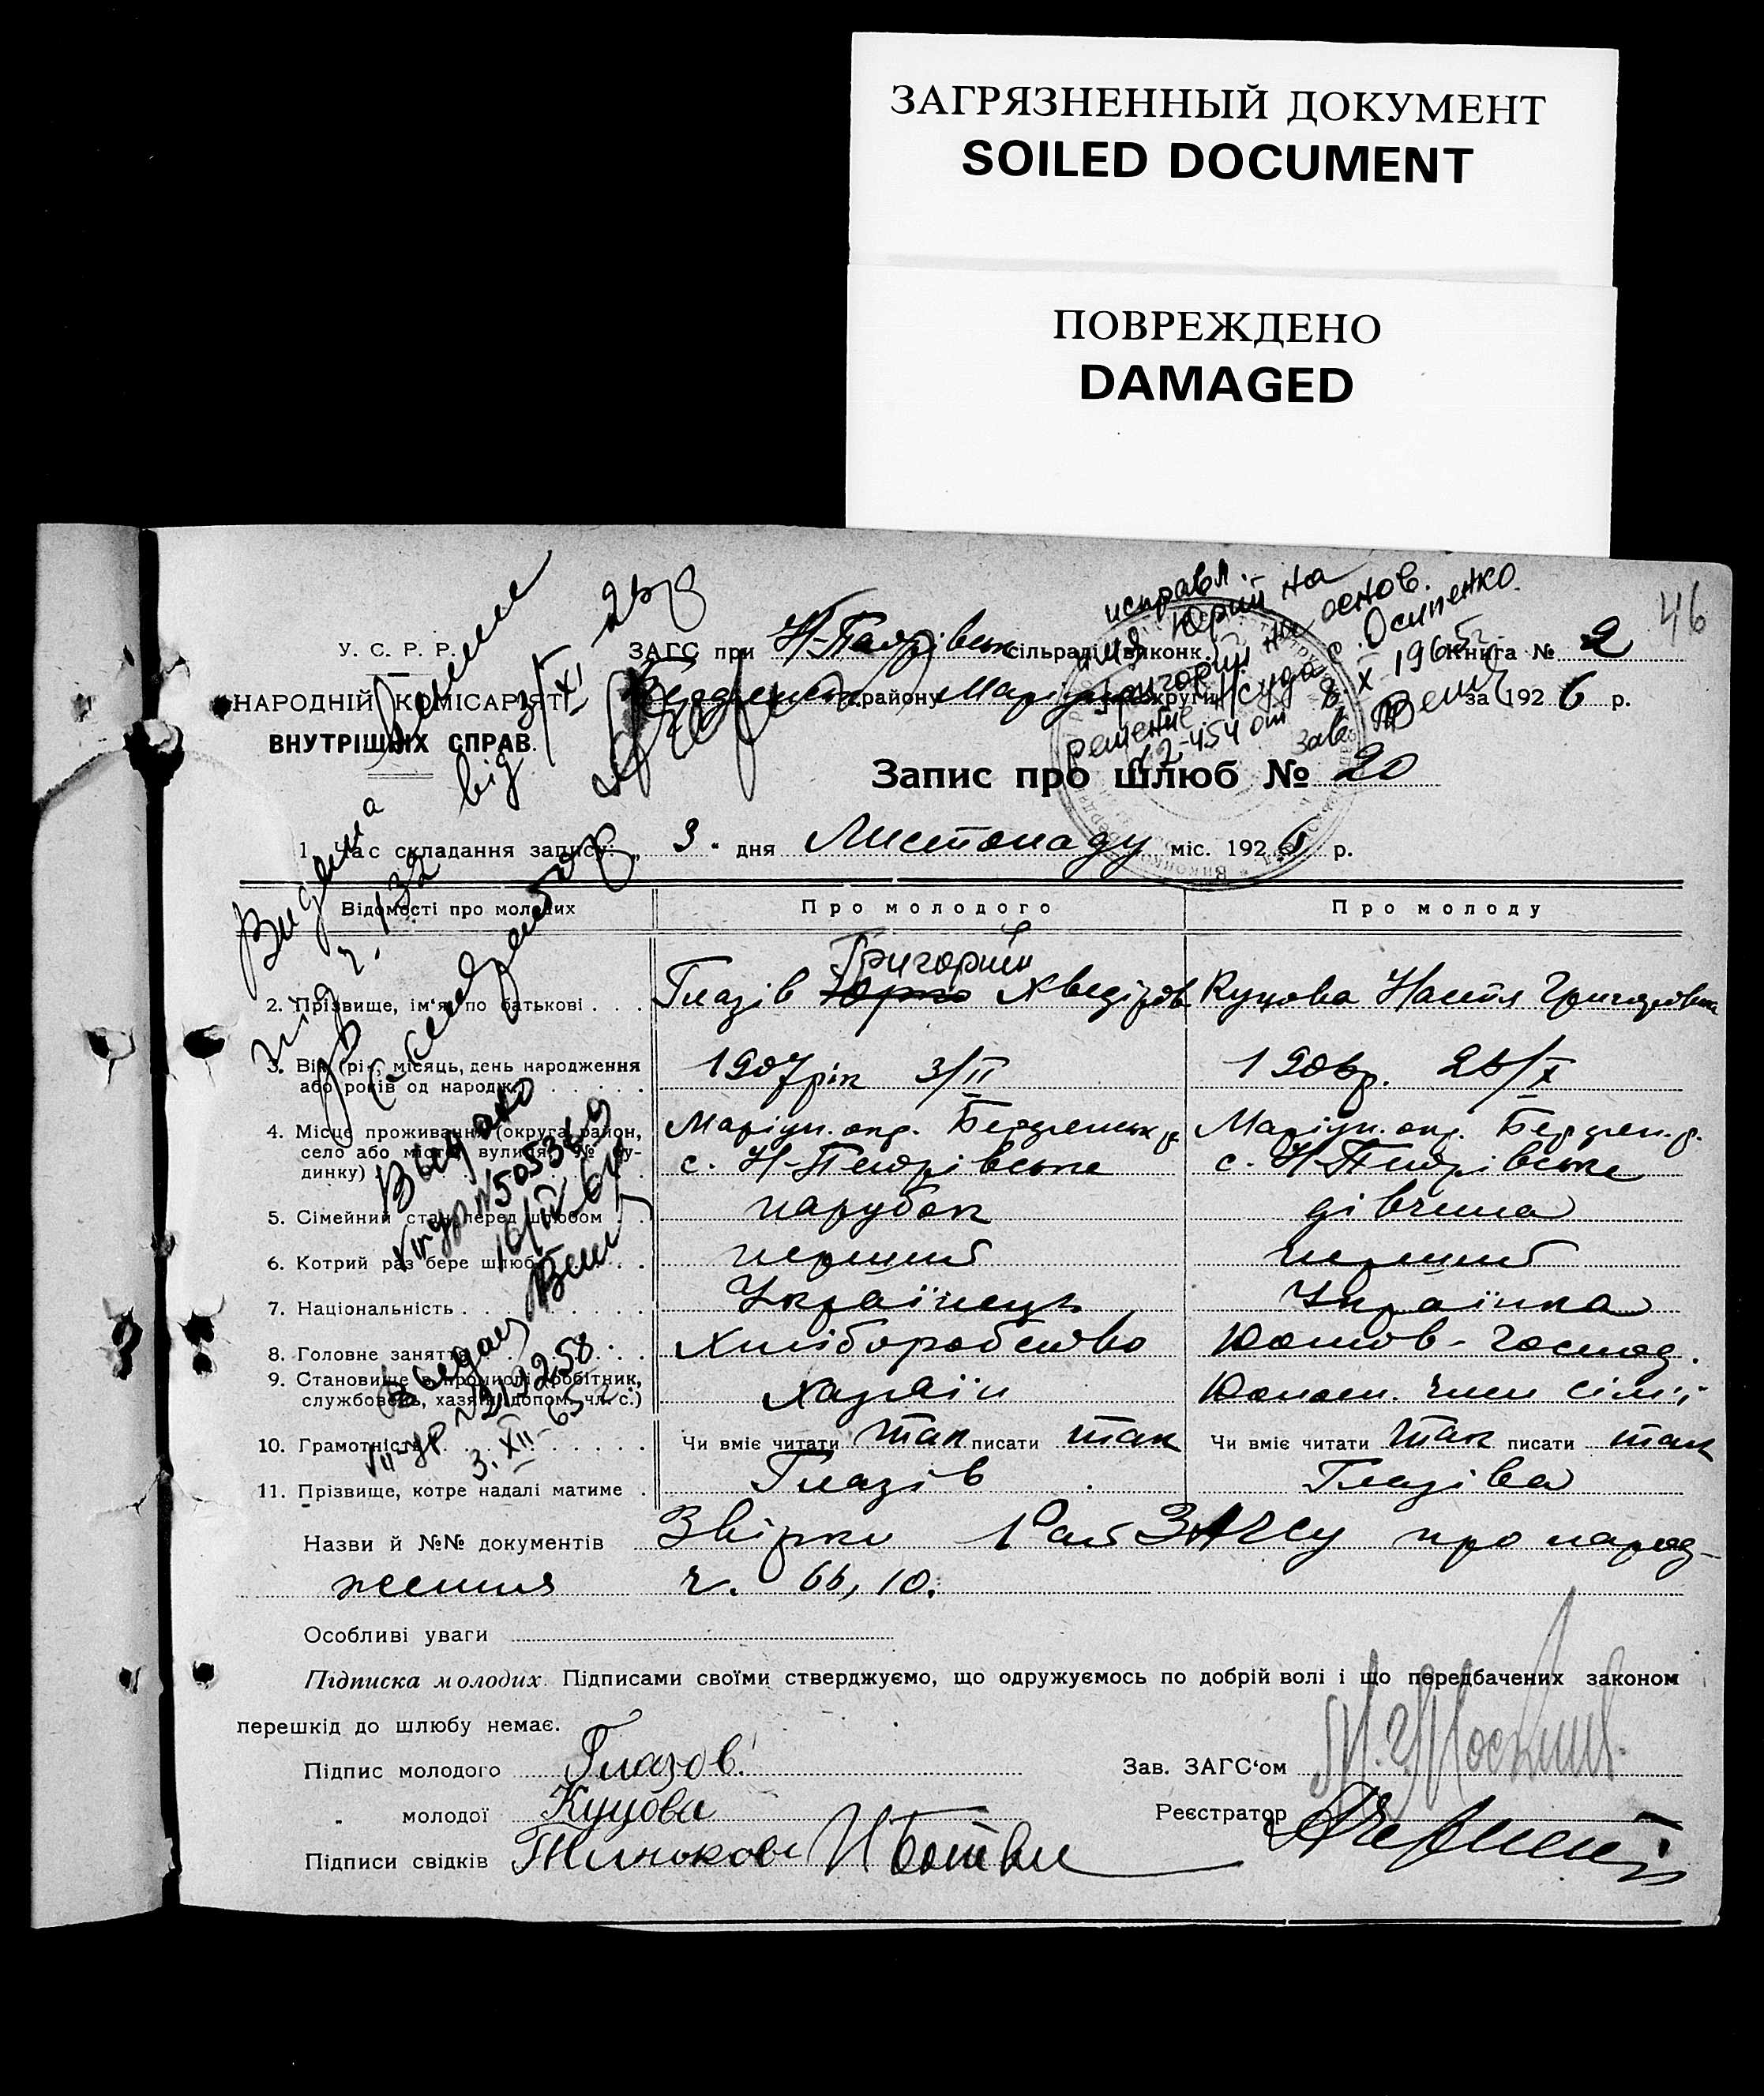 ЗАГРЯЗНЕННЫЙ ДОКУМЕНТ
SOILED DOCUMENT
ПОВРЕЖДЕНО
DAMAGED
46
исправл
имя Юрий на
Григорий на основ.
решение Н/суда с. Осипенко.
2-454 от 8.X-1965
зав.
У. С. Р. Р.
НАРОДНІЙ КОМІСАРІЯТ
ВНУТРІШНІХ СПРАВ.
ЗАГС при сільраді (виконк.) Книга № 2
району округи за 1926 р.
Запис про шлюб № 20
1. Час складання запису: „ 3 " дня Листопаду міс. 1926 р.
Видана
від 3/XI
ч. 132
Відомості про молодих
Про молодого
Про молоду
Григорий
2. Прізвище, ім'я, по батькові . . . Глазів Юрко Куцова Настя Григоровна
3. Вік (рік, місяць, день народження
або років од народж.) 1907 рік 3/II 1906 р. 26/X
4. Місце проживання (округа, район,
село або місто, вулиця, № бу-
динку) Маріуп. окр. Бердянськ р. Маріуп. окр. Бердян. р.
с. Н-Петрівське с. Н-Петрівське
5. Сімейний стан перед шлюбом . . парубок дівчина
6. Котрий раз бере шлюб перший перший
7. Національність Українець Українка
8. Головне заняття Хліборобство Домов-господ.
9. Становище в промислі (робітник,
службовець, хазяїн, допом. чл. с.) хазяїн Допом. член сім'ї
10. Грамотність Чи вміє читати так писати так Чи вміє читати так писати так
11. Прізвище, котре надалі матиме . Глазів Глазіва
Выдано
16/IX-64
3.XII-65 г.
Назви й №№ документів ЗАГСу про народ-
ження ч. 66, 10.
Особливі уваги
Підписка молодих. Підписами своїми стверджуємо, що одружуємось по добрій волі і що передбачених законом
перешкід до шлюбу немає.
Підпис молодого Глазов Зав. ЗАГС'ом
" молодої Куцова Реєстратор
Підписи свідків